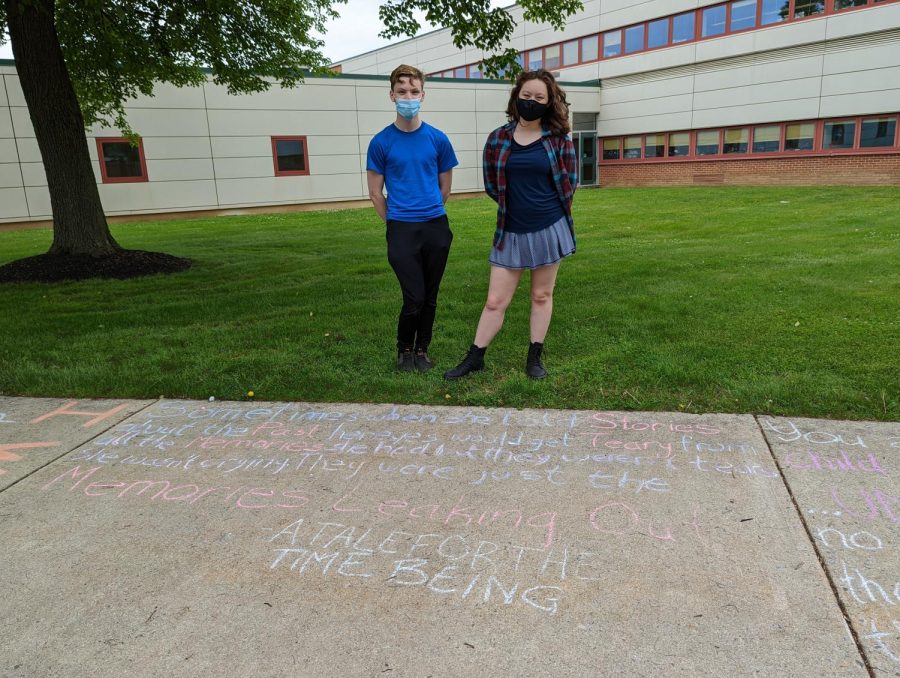 H
Sometimes when she told Stories
about the Past her eyes would get Teary from
all the Memories she had but they weren't tears
she wasnt crying They were just the
Memories Leaking Out
- A TALE FOR THE
TIME BEING
You
Child
no
the